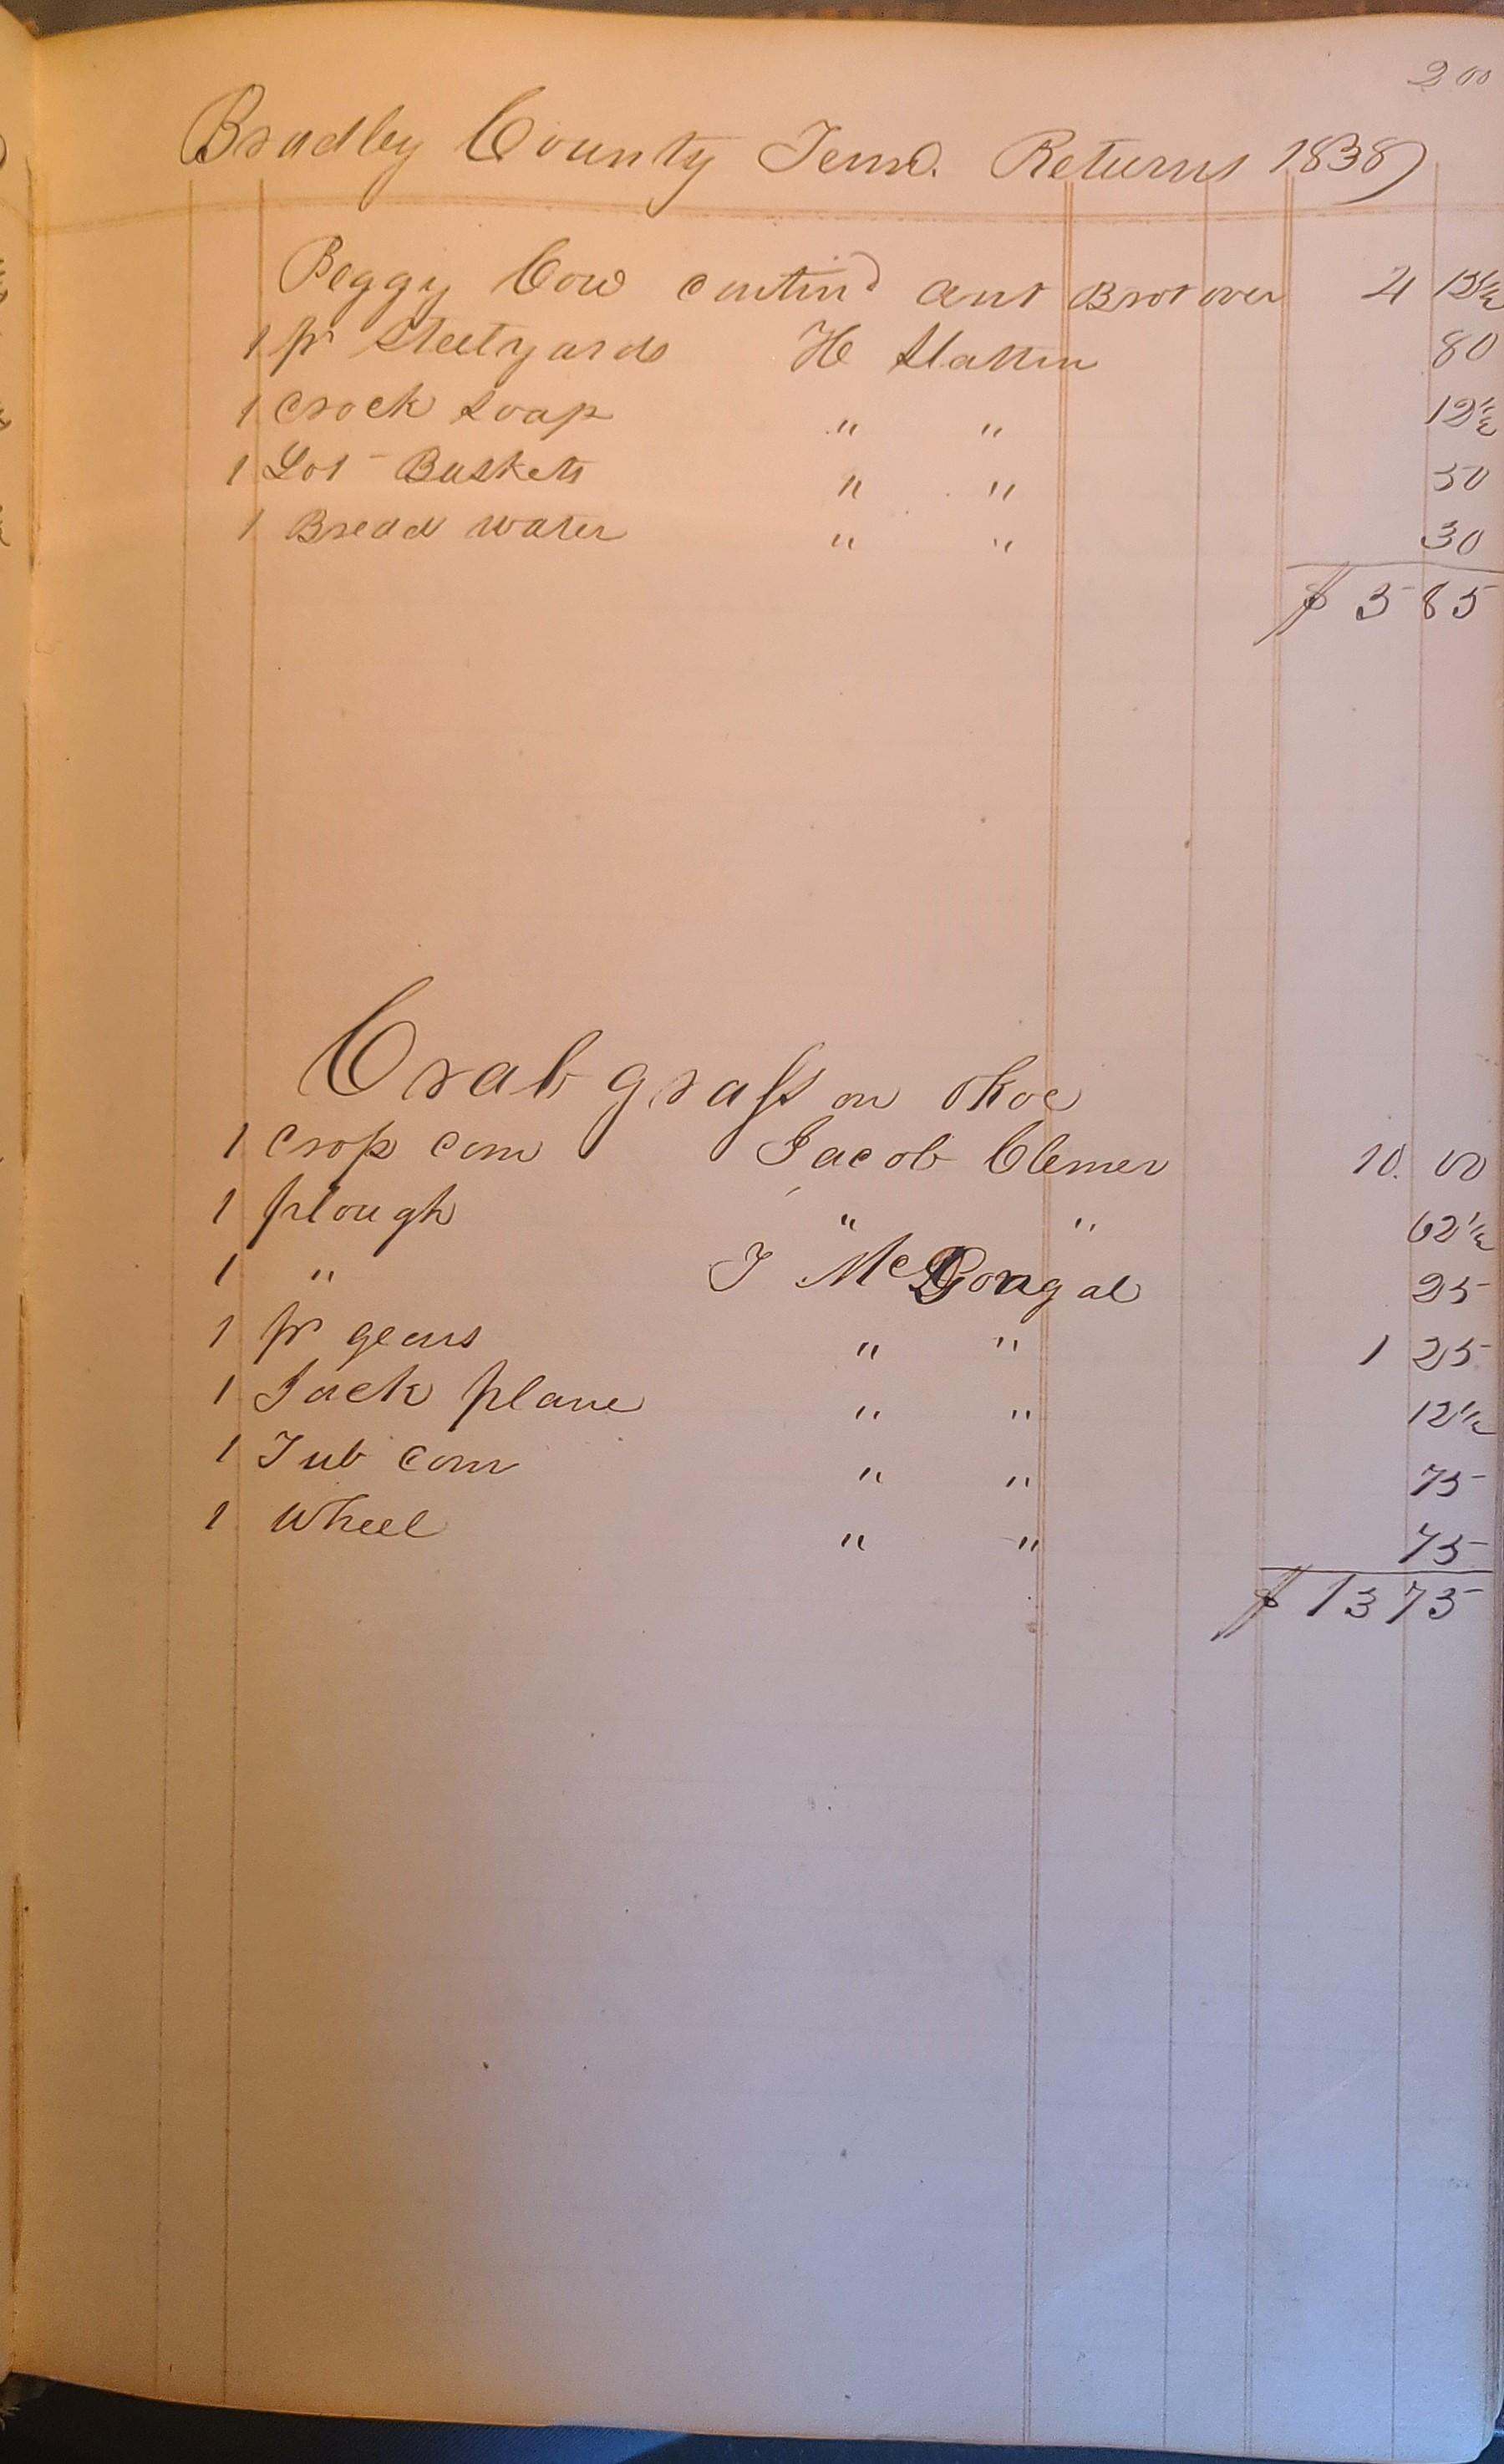 200
Bradley County Tenn. Returns 1838
Peggy Cow contind amt Brot over 4 12½
1 pr Steelyards H Slatten 80
1 Crock Soap " " 12½
1 Lot Baskets " " 50
1 Bread water " " 30
$ 5 85
Crabgrass on Okoe
1 Crop corn Jacob Clemer 10. 00
1 plough " " 62½
1 " J McGongal 25
1 pr gears " " 1 25
1 Jack plane " " 12½
1 Tub corn " " 75
1 Wheel " " 75
$ 13 75